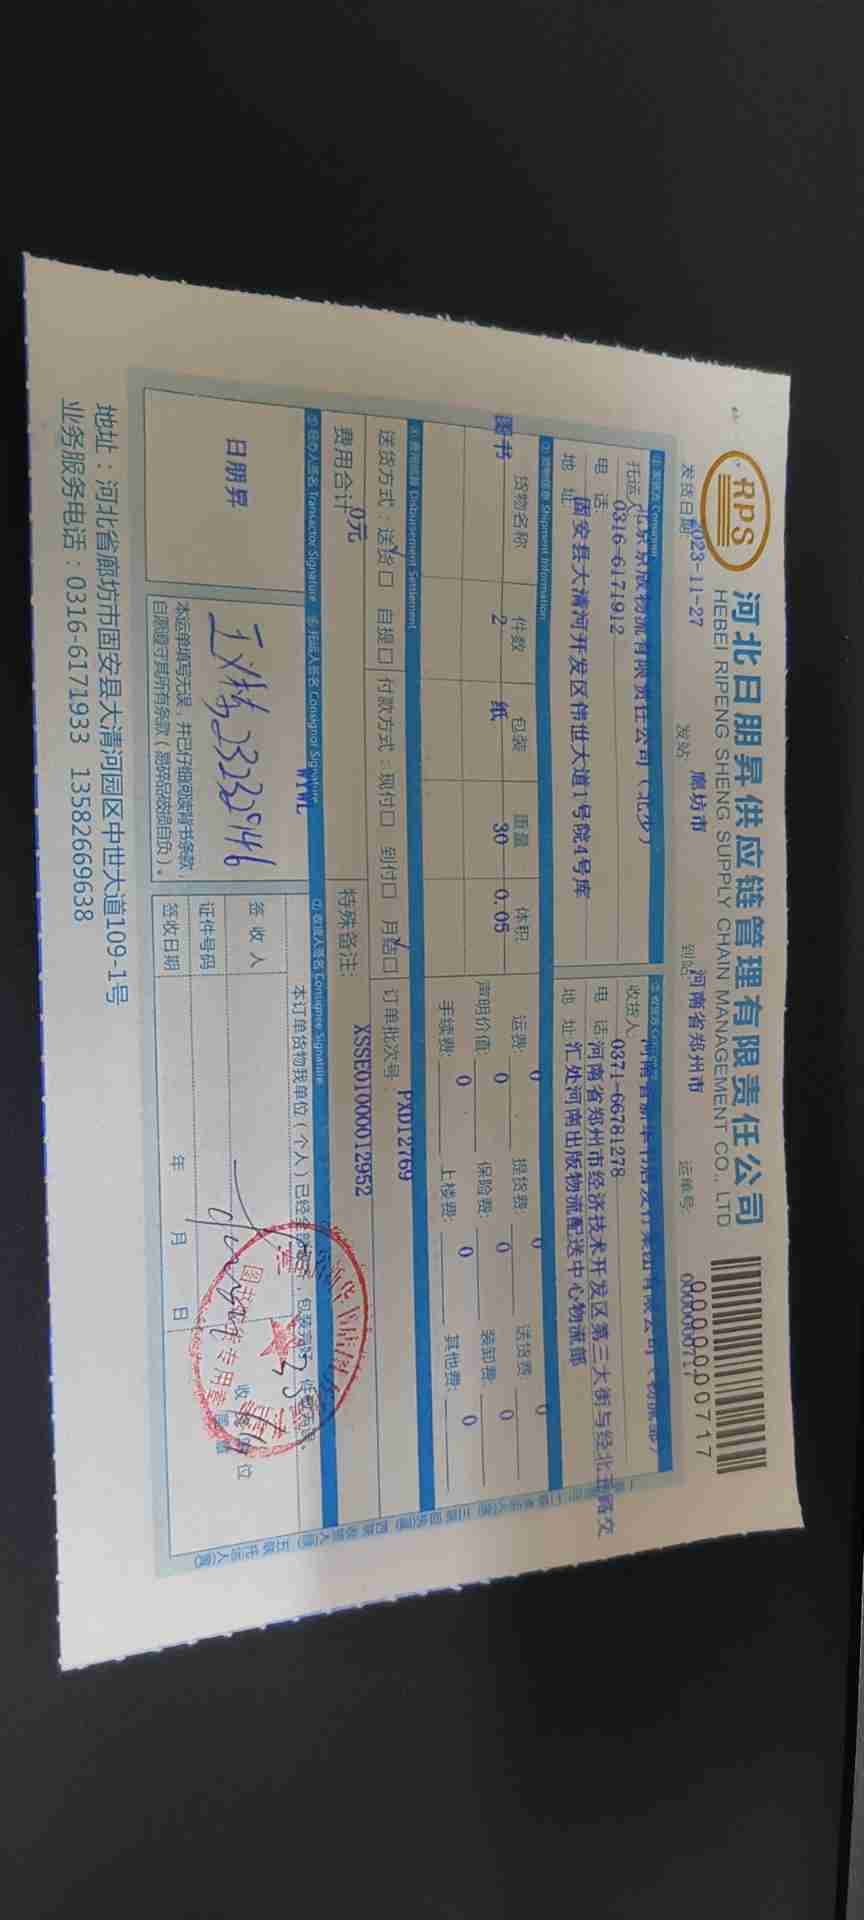 RPS
河北日朋昇供应链管理有限责任公司
HEBEI RIPENG SHENG SUPPLY CHAIN MANAGEMENT CO., LTD
0000000717
发货日期 2023-11-27 发站 廊坊市 到站 河南省郑州市 运单号:
托运人 北京京版物流有限责任公司(北少)
电 话 0316-6171912
地 址 固安县大清河开发区伟世大道1号院4号库
收货人
电 话 0371-66781278
地 址 河南省郑州市经济技术开发区第三大街与经北五路交
汇处河南出版物流配送中心物流部
Shipment Information
货物名称 件数 包装 重量 体积
图书 2 纸 30 0.05
运费: 0 提货费: 0 送货费: 0
声明价值: 0 保险费: 0 装卸费: 0
手续费: 0 上楼费: 0 其他费: 0
费用结算 Disbursement Settlement
送货方式: 送货口 自提口 付款方式: 现付口 到付口 月结口 订单批次号: PXD12769
费用合计 0元 特殊备注: XSSE01000012952
⑤ 经办人签名 Transactor Signature ⑥ 托运人签名 Consignor Signature ⑦ 收货人签名 Consignee Signature
WYWL
日朋昇
本运单填写无误,并已仔细阅读背书条款,
自愿遵守其所有条款(易碎品破损自负)。
签 收 人
证件号码
签收日期 年 月 日
地址:河北省廊坊市固安县大清河园区中世大道109-1号
业务服务电话:0316-6171933 13582669638